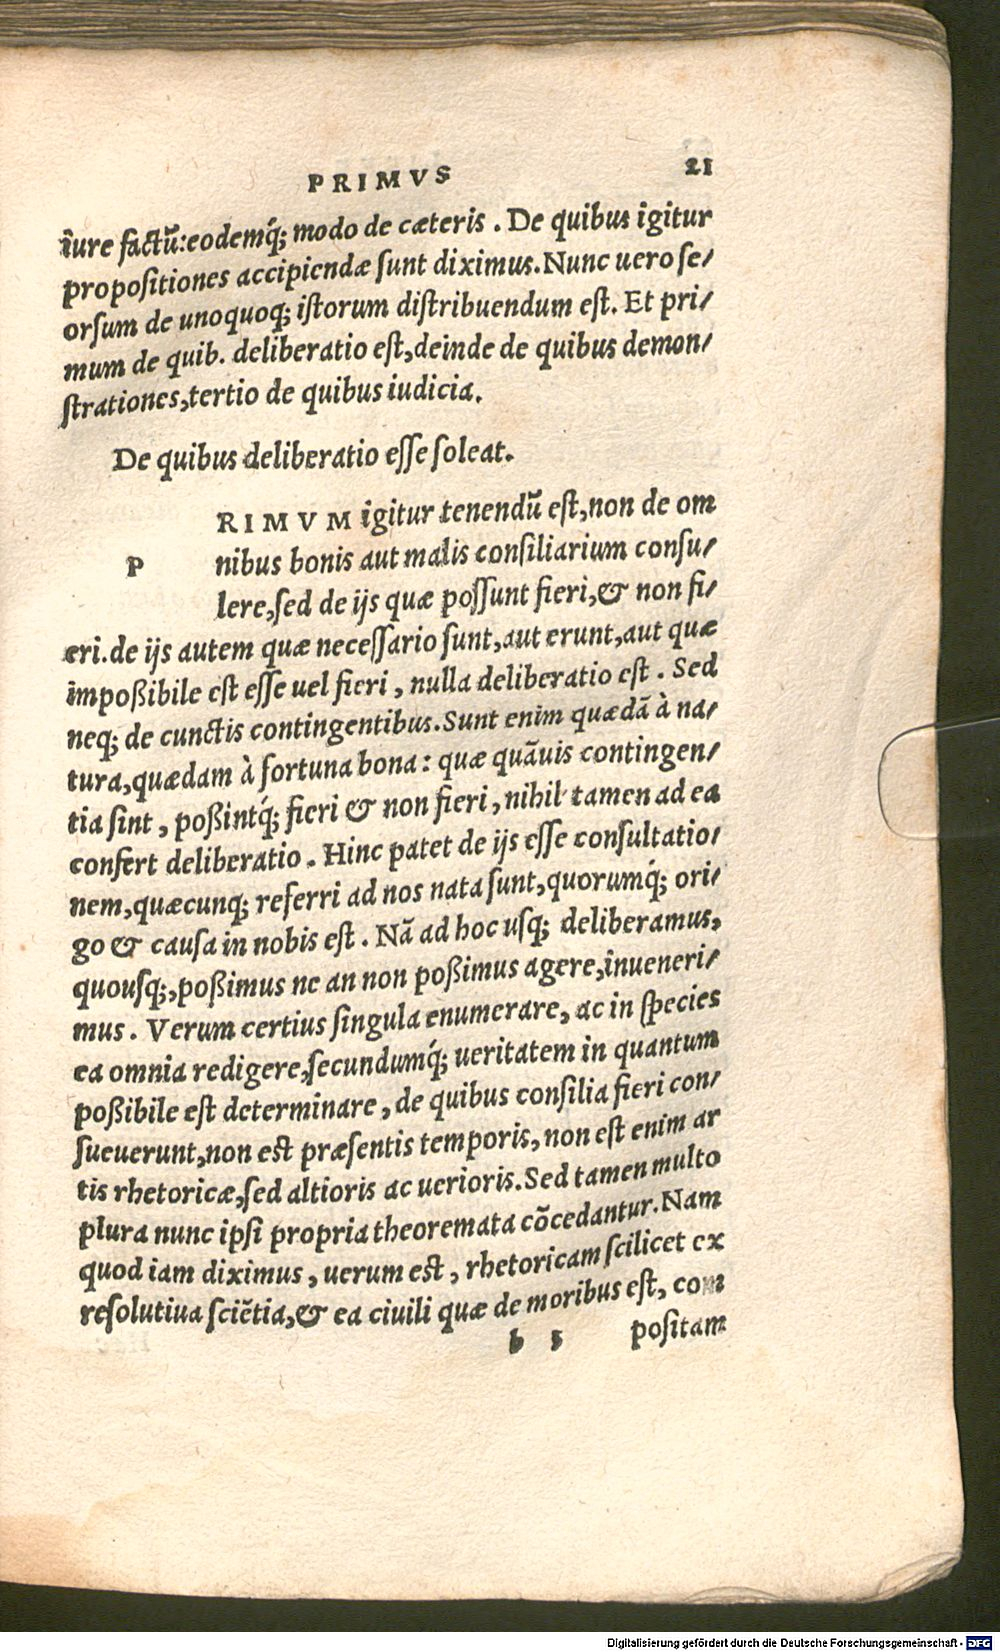 PRIMVS 21
iure factū: eodemq́; modo de cæteris. De quibus igitur
propositiones accipiendæ sunt diximus. Nunc uero se/
orsum de unoquoq; istorum distribuendum est. Et pri/
mum de quib. deliberatio est, deinde de quibus demon/
strationes, tertio de quibus iudicia.
De quibus deliberatio esse soleat.
PRIMVM igitur tenendū est, non de om
nibus bonis aut malis consiliarium consu/
lere, sed de ijs quæ possunt fieri, & non fi/
eri. de ijs autem quæ necessario sunt, aut erunt, aut quæ
impoßibile est esse uel fieri, nulla deliberatio est. Sed
neq; de cunctis contingentibus. Sunt enim quædā à na/
tura, quædam à fortuna bona: quæ quāuis contingen/
tia sint, poßintq́; fieri & non fieri, nihil tamen ad ea
confert deliberatio. Hinc patet de ijs esse consultatio/
nem, quæcunq; referri ad nos nata sunt, quorumq́; ori/
go & causa in nobis est. Nā ad hoc usq; deliberamus,
quousq;, poßimus ne an non poßimus agere, inueneri/
mus. Verum certius singula enumerare, ac in species
ea omnia redigere, secundumq́; ueritatem in quantum
poßibile est determinare, de quibus consilia fieri con/
sueuerunt, non est præsentis temporis, non est enim ar
tis rhetoricæ, sed altioris ac uerioris. Sed tamen multo
plura nunc ipsi propria theoremata cōcedantur. Nam
quod iam diximus, uerum est, rhetoricam scilicet ex
resolutiua sciētia, & ea ciuili quæ de moribus est, com
b 5 positam
Digitalisierung gefördert durch die Deutsche Forschungsgemeinschaft - DFG